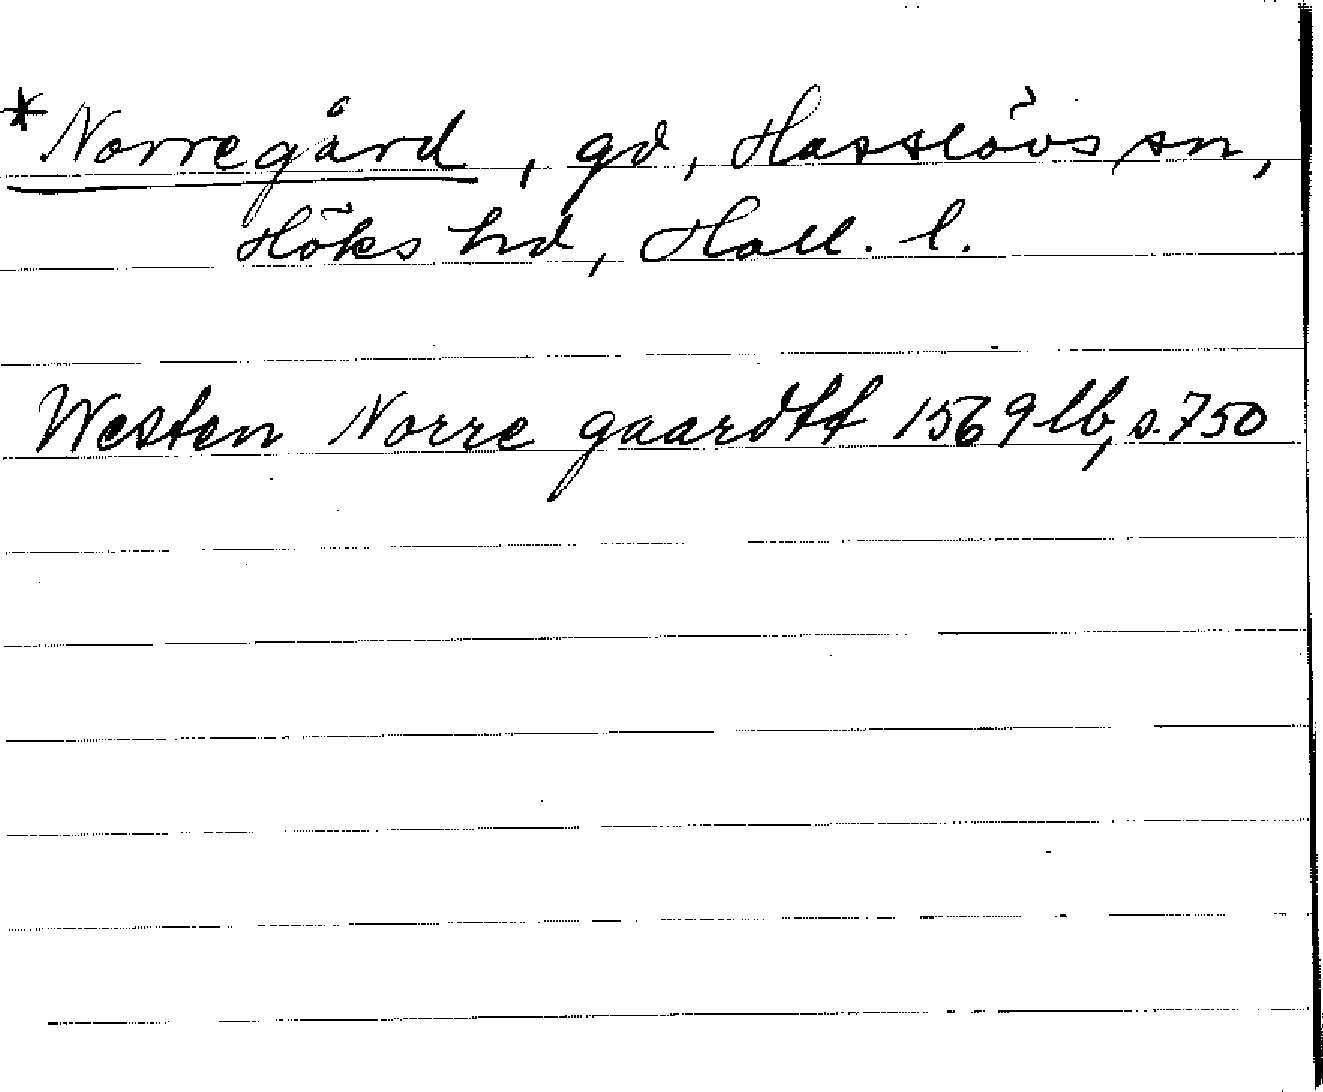 *Norregård, gd, Hasslövs sn,
Höks hd, Hall. l.
Westen Norre gaardtt 1569 lb, s. 750